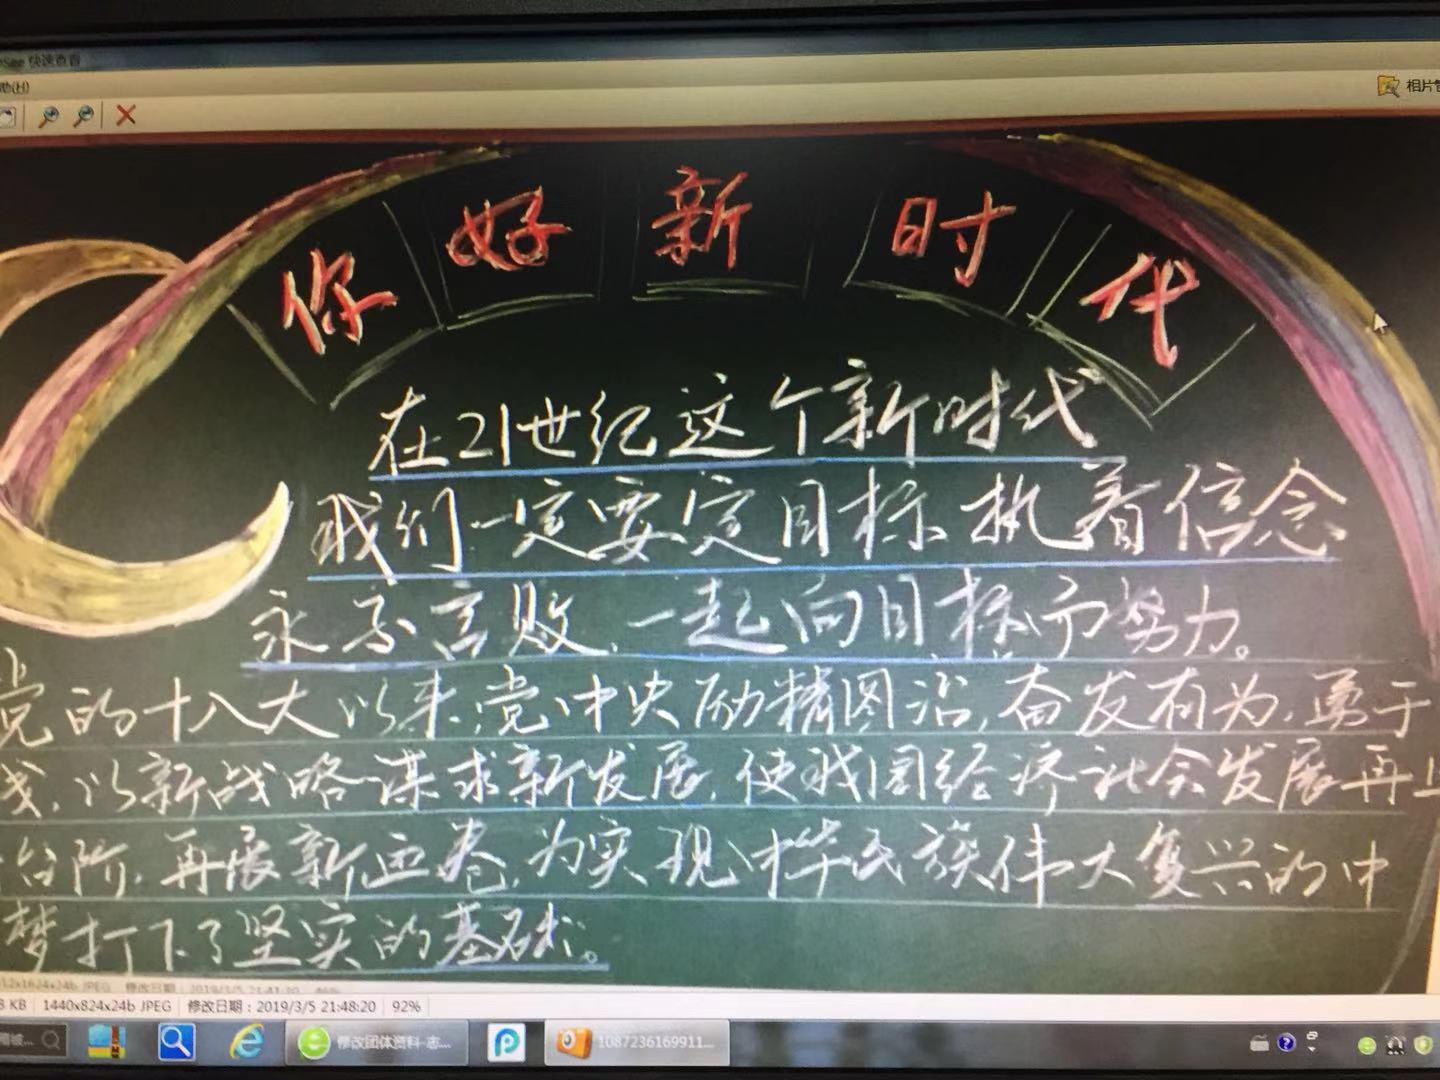 See 快速查看
助(H)
相片管
你好新时代
在21世纪这个新时代
我们一定要定目标,执着信念
永不言败,一起向目标而努力。
党的十八大以来,党中央励精图治,奋发有为,勇于
战,以新战略谋求新发展,使我国经济社会发展再上
台阶,再展新画卷,为实现中华民族伟大复兴的中
梦打下了坚实的基础。
12x1624x24b JPEG 修改日期:2019/3/5 21:41:10 46%
8 KB 1440x824x24b JPEG 修改日期:2019/3/5 21:48:20 92%
修改团体资料-志...
1087236169911...